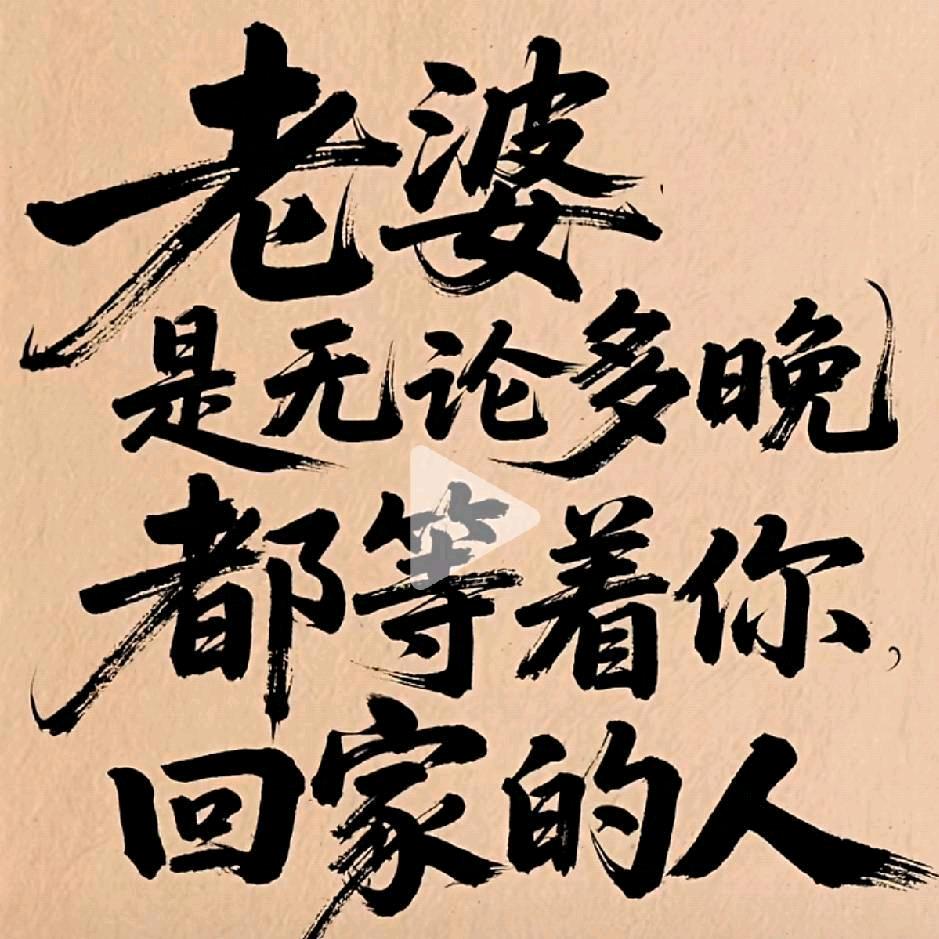 老婆
是无论多晚
都等着你,
回家的人